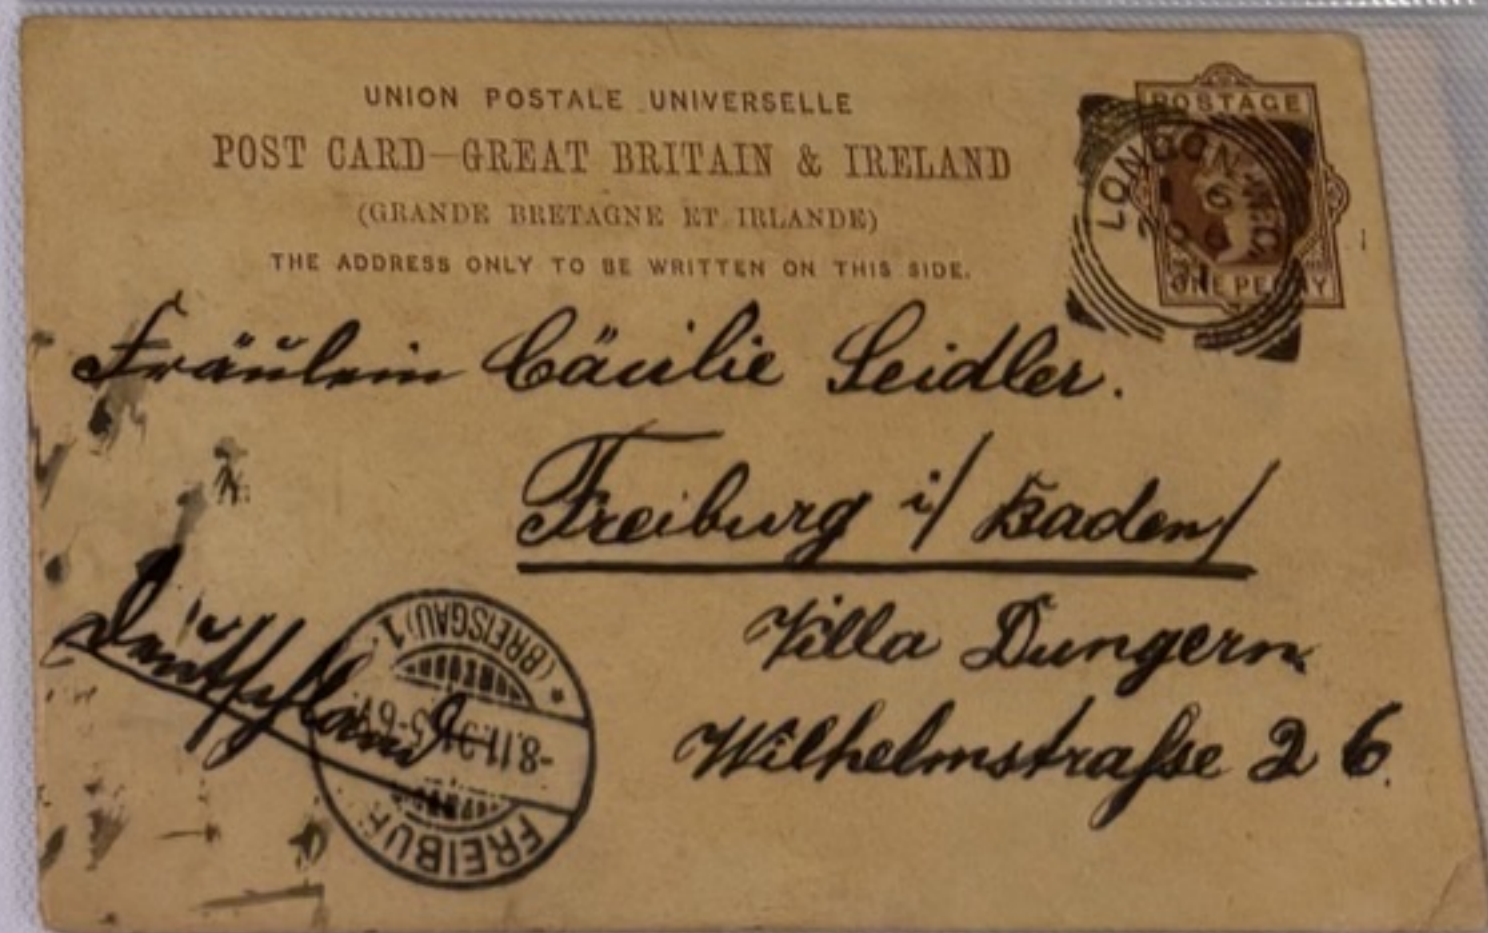 UNION POSTALE UNIVERSELLE
POST CARD—GREAT BRITAIN & IRELAND
(GRANDE BRETAGNE ET IRLANDE)
THE ADDRESS ONLY TO BE WRITTEN ON THIS SIDE.
POSTAGE
ONE PENNY
LONDON
Fräulein Cäcilie Seidler.
Freiburg i/ Baden/
Villa Dungern
Wilhelmstraſse 26.
Deutschland
FREIBURG
-8.11.91. 5-6
(BREISGAU) 1. *